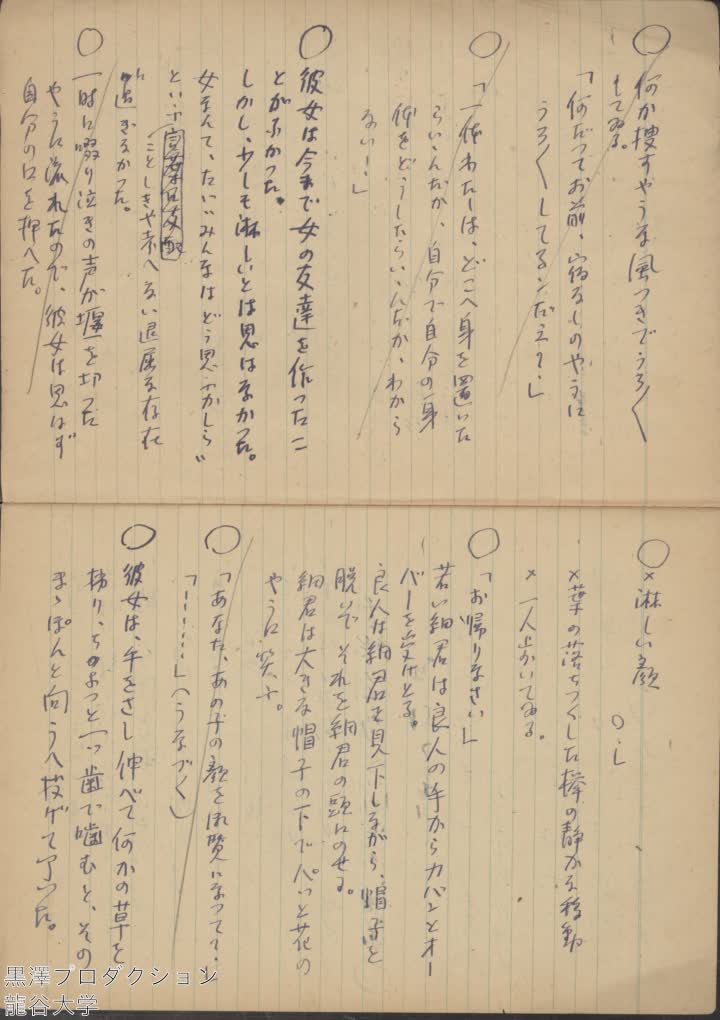 ○何か捜すやうな風つきでうろ〱
してゐる。
「何だつてお前、宿なしのやうに
うろ〱してるンだえ？」
○「一体わたしは、どこへ身を置いた
らいゝんだか、自分で自分の身
体をどうしたらいゝんだか、わから
ない！」
○彼女は今まで女の友達を作つたこ
とがなかつた。
しかし、少しも淋しいとは思はなかつた。
女なんて、たいがいみんなはどう思ふかしら
といふ
ことしきや考へない退屈な存在
に過ぎなかつた。
○一時に啜り泣きの声が堰を切つた
やうに流れたので、彼女は思はず
自分の口を押へた。
○×淋しい顔
×葉の落ちつくした欅の静かな移動
×一人歩いてゐる。
○「お帰りなさい」
若い細君は良人の手からカバンとオー
バーを受けとる。
良人は細君を見下しながら、帽子を
脱いで、それを細君の頭にのせる。
細君は大きな帽子の下でパッと花の
やうに笑ふ。
○「あなた、あの子の顔を御覧になつて？」
「………」（うなづく）
○彼女は、手をさし伸べて何かの草を
摘り、ちよつと一つ歯で噛むと、その
まゝぽんと向うへ投げて了つた。
黒澤プロダクション
龍谷大学